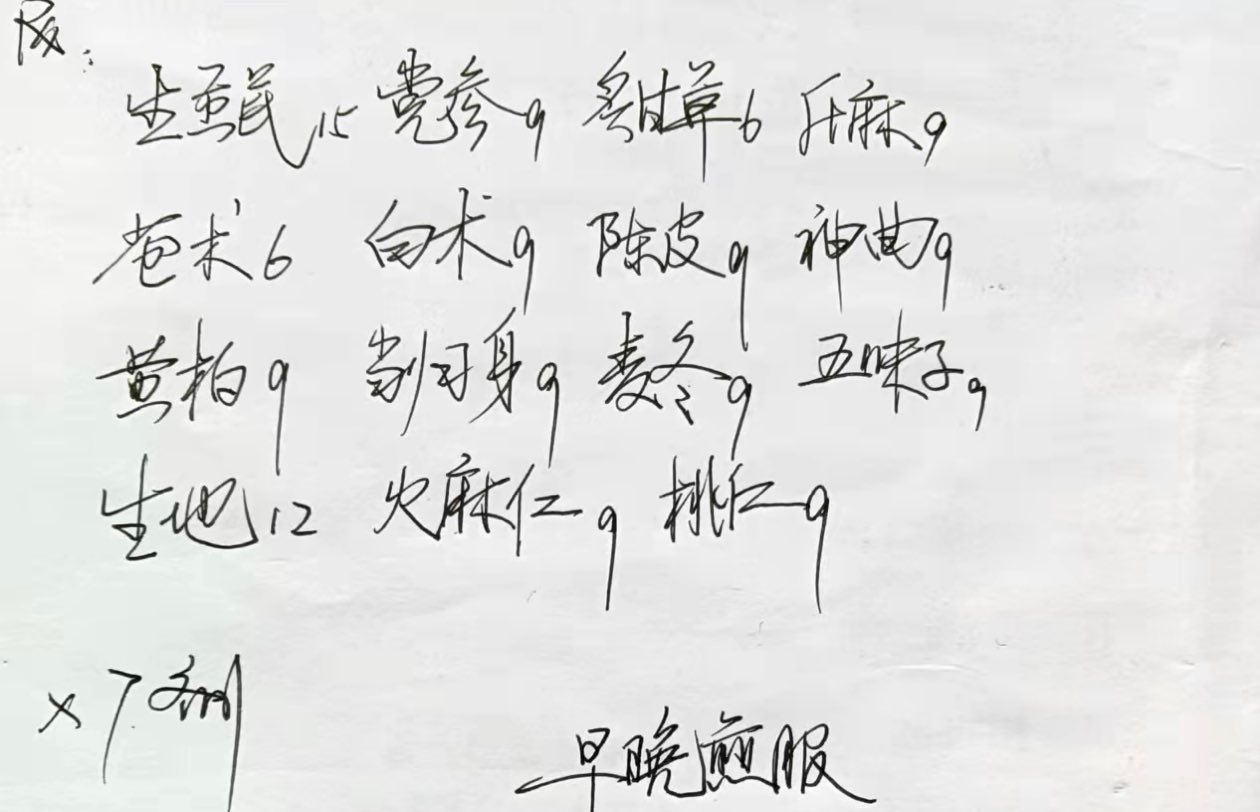 Rx:
生黄芪15 党参9 炙甘草6 升麻9
苍术6 白术9 陈皮9 神曲9
黄柏9 当归身9 麦冬9 五味子9
生地12 火麻仁9 桃仁9
×7剂
早晚煎服